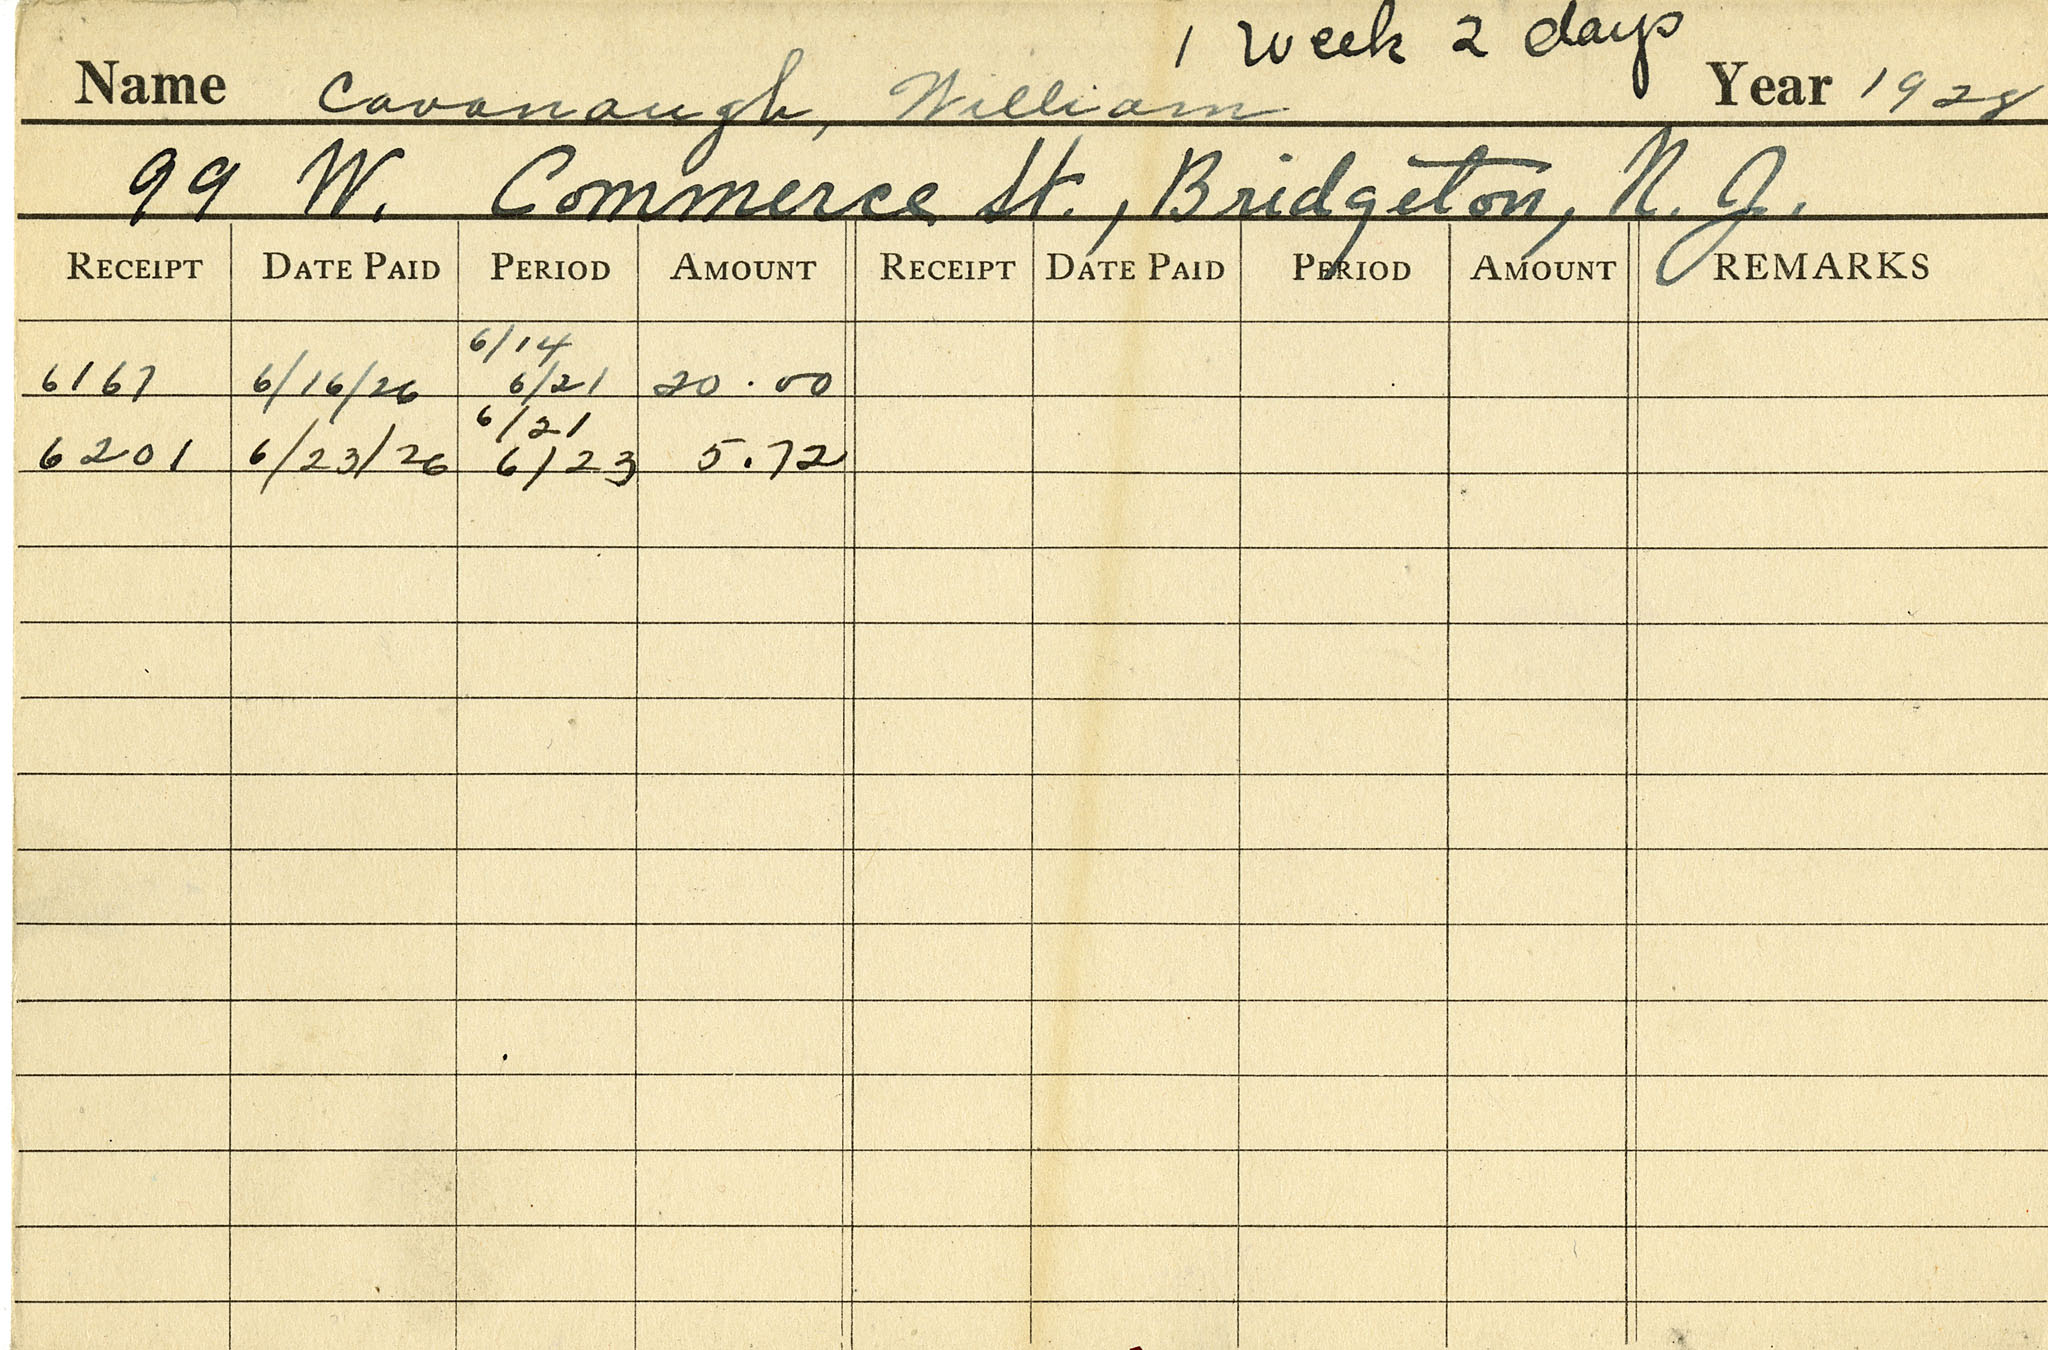 1 Week 2 days
Name Cavanaugh, William Year 1928
99 W. Commerce St., Bridgeton, N. J.
RECEIPT DATE PAID PERIOD AMOUNT RECEIPT DATE PAID PERIOD AMOUNT REMARKS
6/14
6167 6/16/26 6/21 20.00
6/21
6201 6/23/26 6/23 5.72